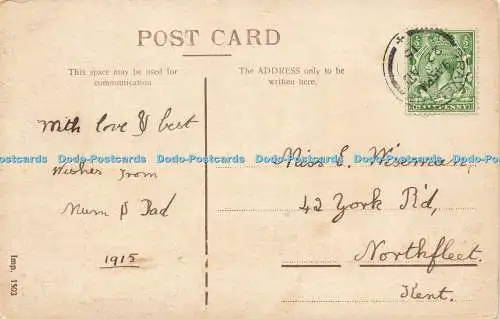 POST CARD
This space may be used for
communication
The ADDRESS only to be
written here.
With love & best
Wishes from
Mum & Dad
1915
Miss E. Wiseman,
42 York R'd,
Northfleet.
Kent.
HALF PENNY
Imp. 1503
Dodo-Postcards Dodo-Postcards Dodo-Postcards Dodo-Postcards Dodo-Postcards